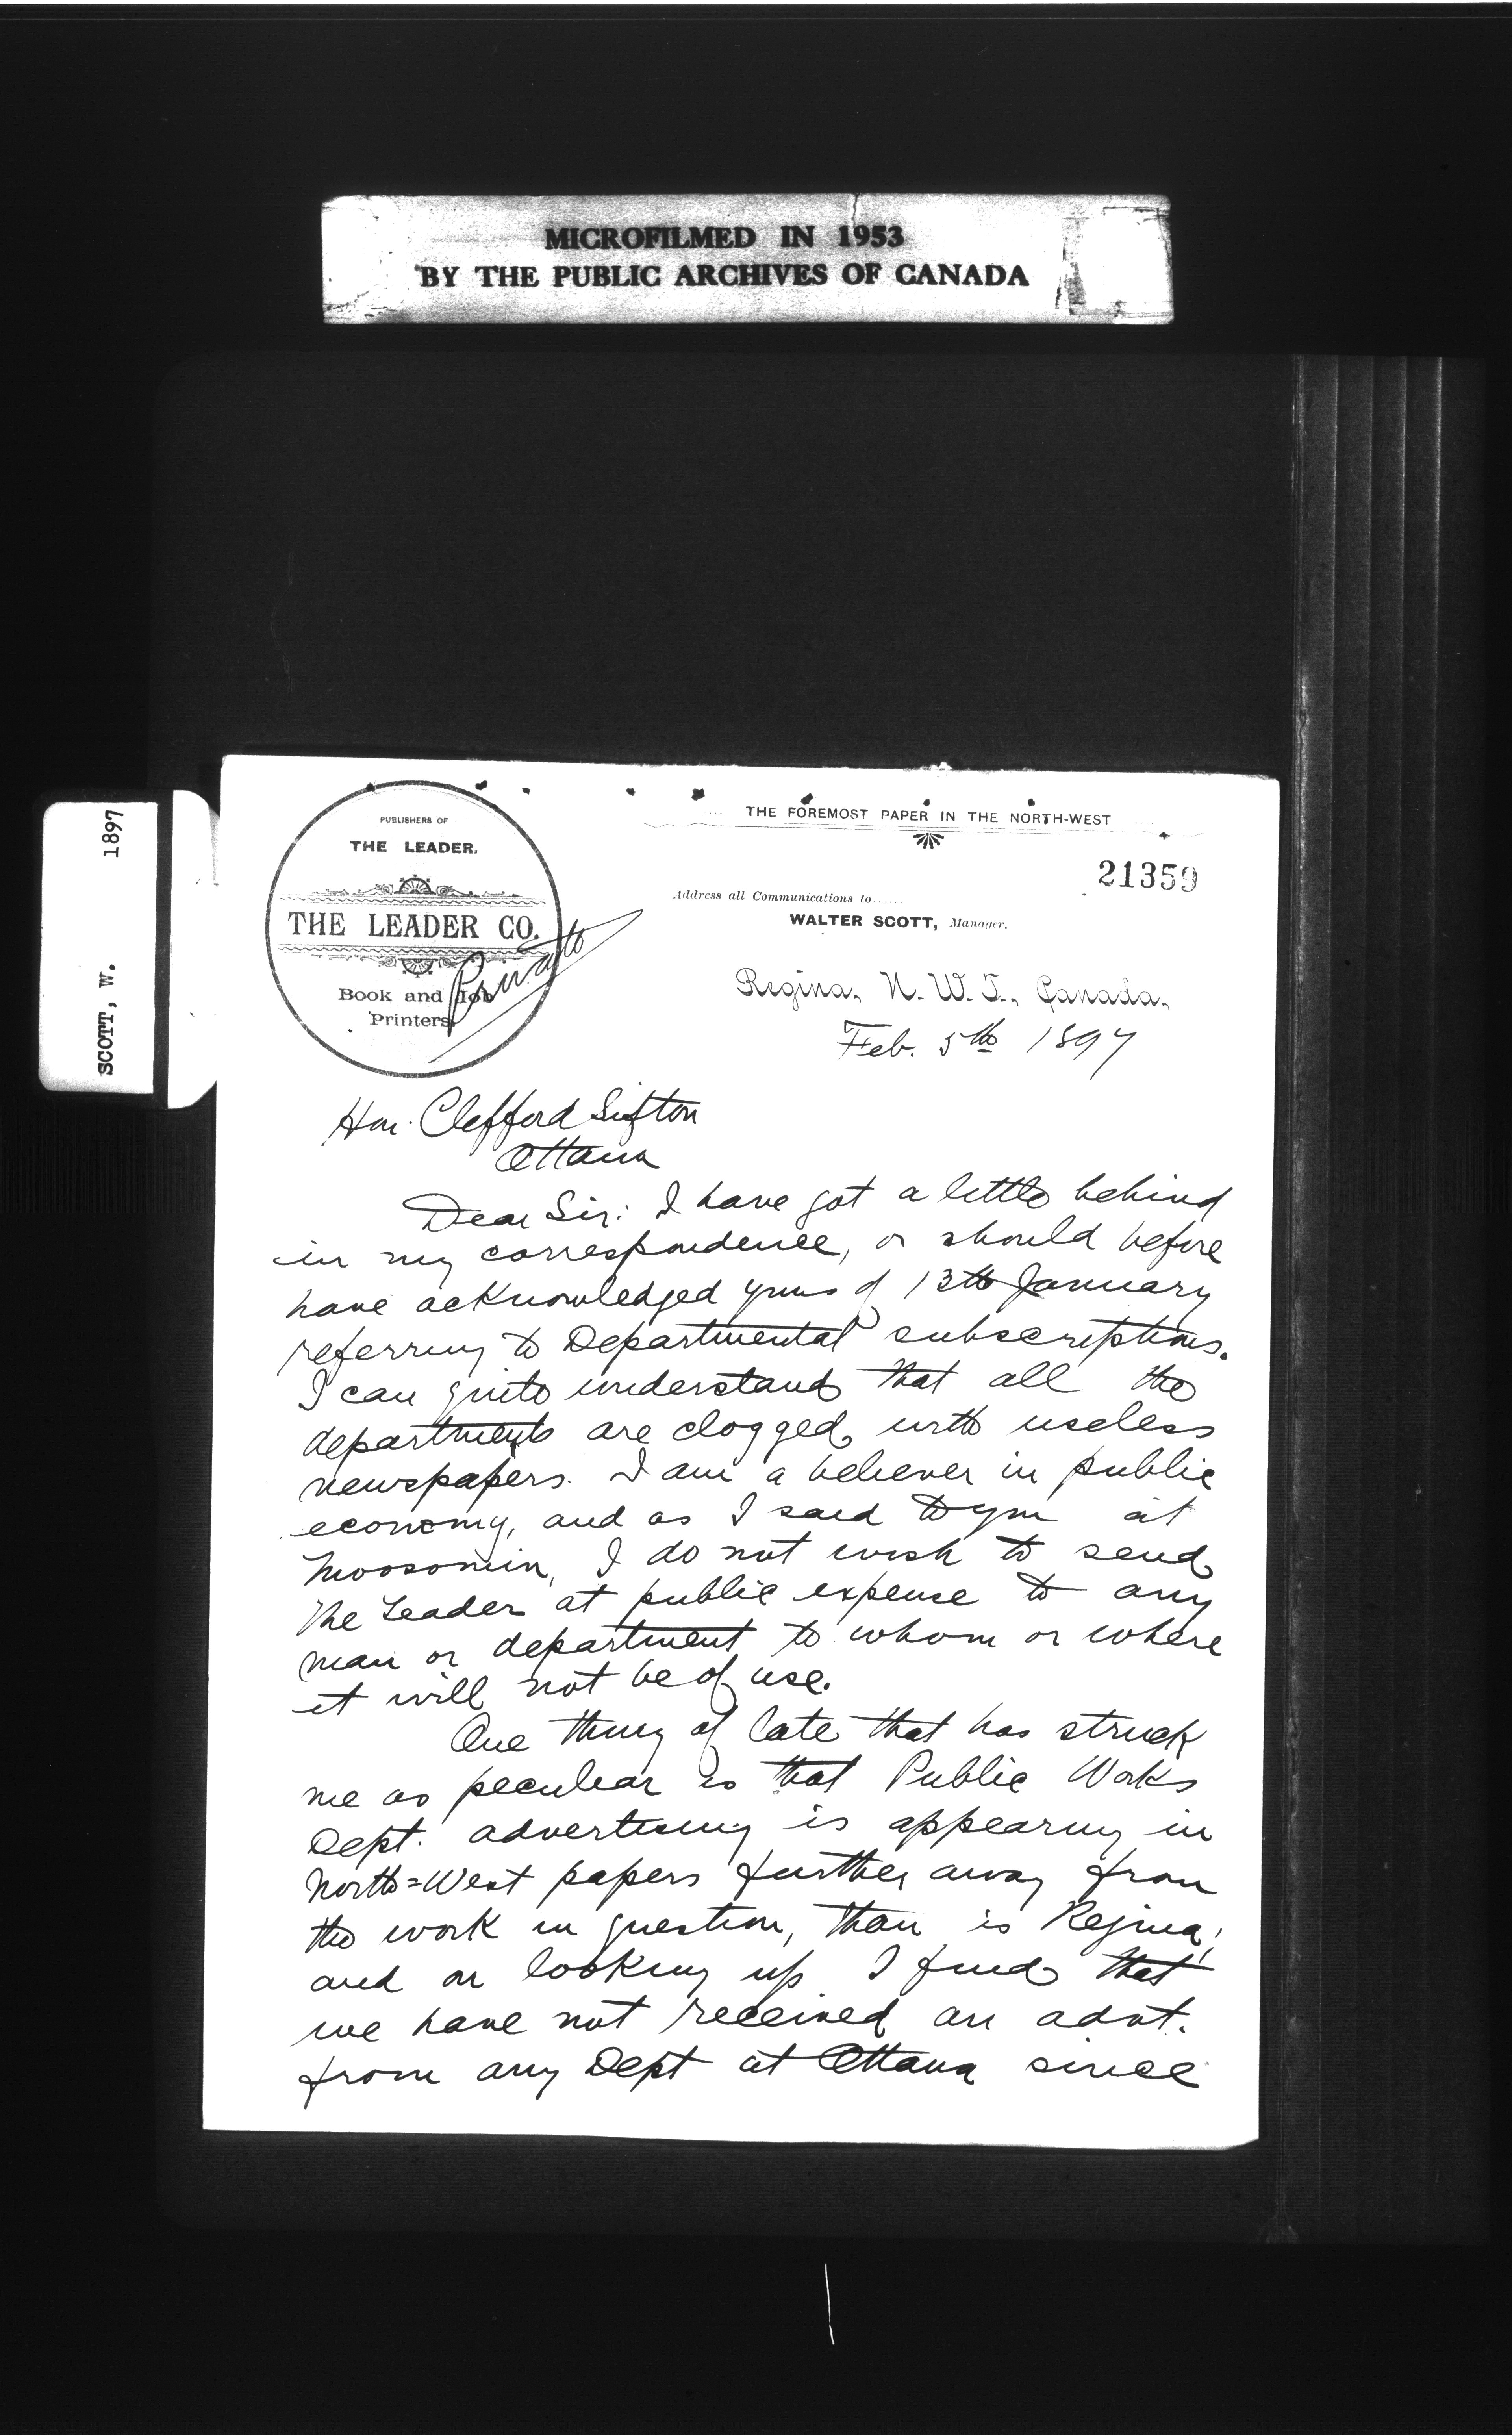 MICROFILMED IN 1953
BY THE PUBLIC ARCHIVES OF CANADA
SCOTT, W. 1897
PUBLISHERS OF
THE LEADER.
THE LEADER CO.
Book and Job
Printers
Private
THE FOREMOST PAPER IN THE NORTH-WEST
21359
Address all Communications to......
WALTER SCOTT, Manager.
Regina, N. W. T., Canada,
Feb. 5th 1897
Hon. Clifford Sifton
Ottawa
Dear Sir: I have got a little behind
in my correspondence, or should before
have acknowledged yours of 13th January
referring to Departmental subscriptions.
I can quite understand that all the
departments are clogged with useless
newspapers. I am a believer in public
economy, and as I said to you at
Moosomin, I do not wish to send
The Leader at public expense to any
man or department to whom or where
it will not be of use.
One thing of late that has struck
me as peculiar is that Public Works
Dept. advertising is appearing in
North=West papers further away from
the work in question, than is Regina;
and on looking up I find that
we have not received an advt.
from any Dept at Ottawa since